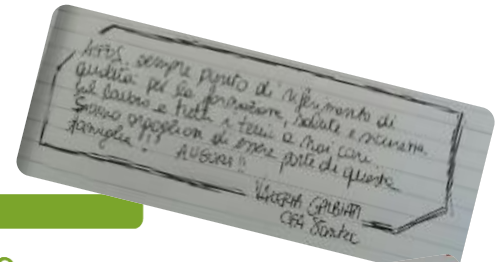 AIFOS, sempre punto di riferimento di
qualità per la formazione, salute e sicurezza
sul lavoro e tutti i temi a noi cari.
Siamo orgogliosi di essere parte di questa
famiglia!!!
AUGURI!!
VALERIA GALBIATI
CFA